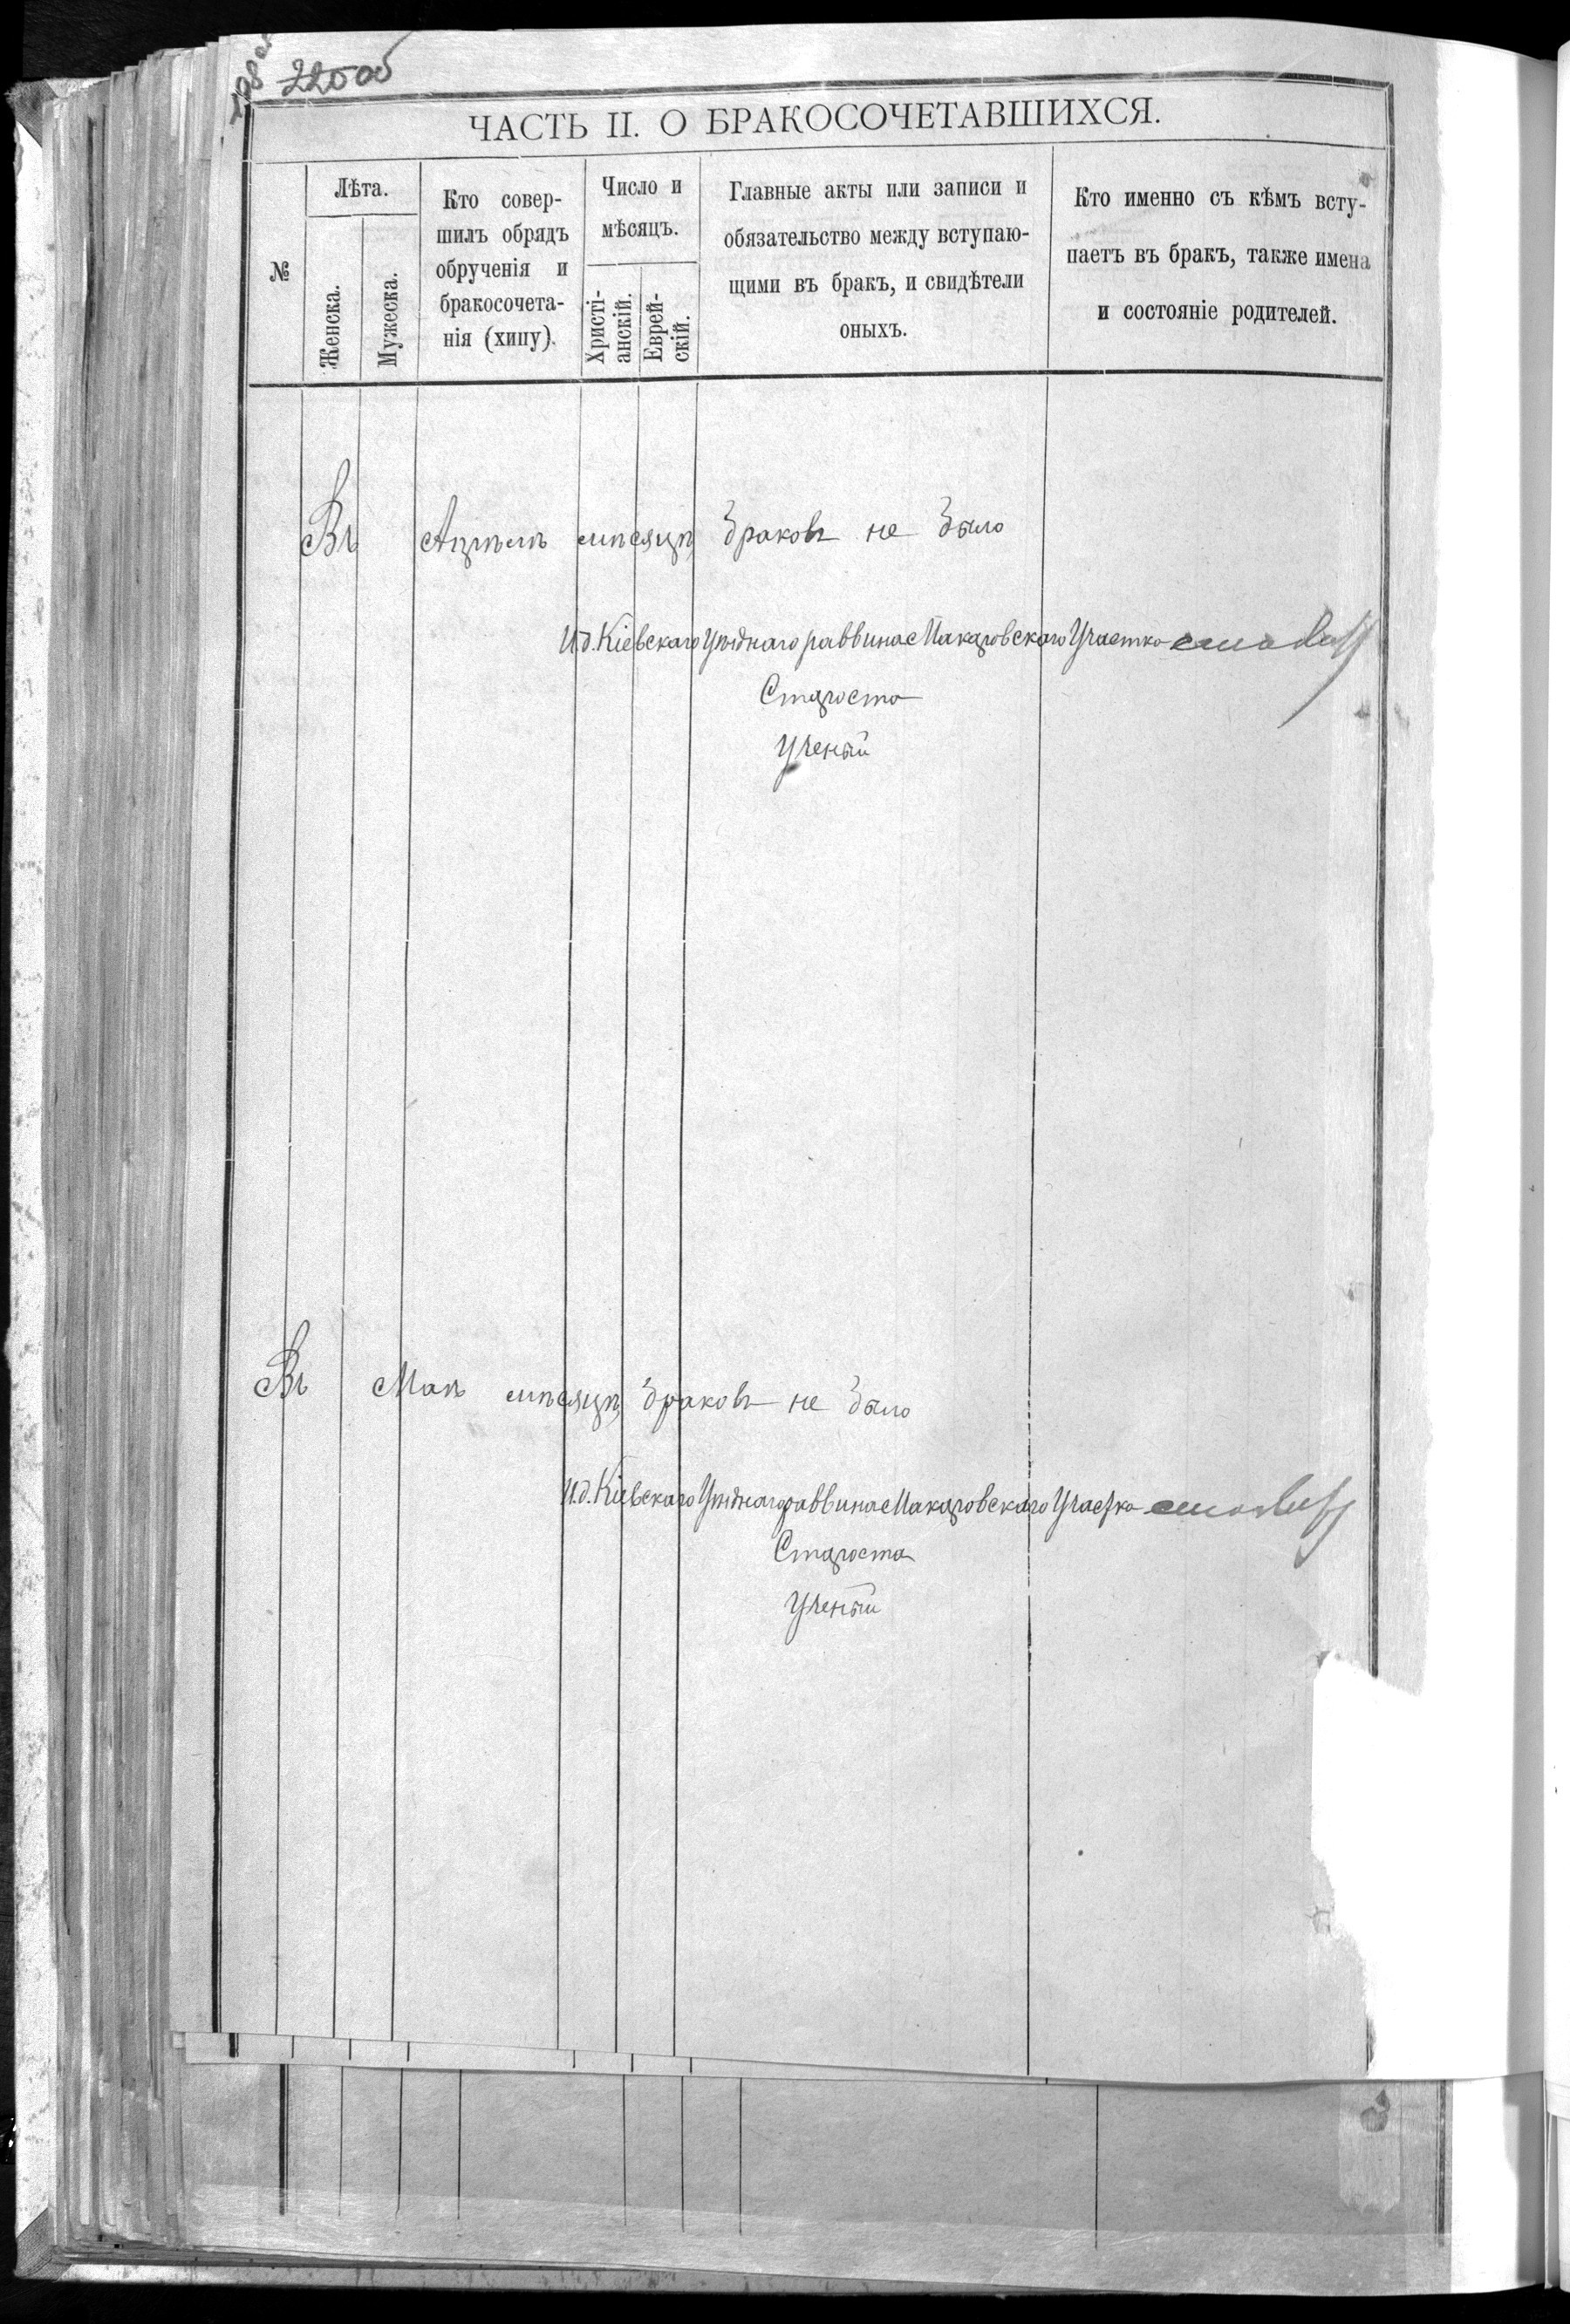 198 об
220 об
ЧАСТЬ II. О БРАКОСОЧЕТАВШИХСЯ.
№
Лѣта.
Женска.
Мужеска.
Кто совер-
шилъ обрядъ
обрученія и
бракосочета-
нія (хипу).
Число и
мѣсяцъ.
Христі-
анскій.
Еврей-
скій.
Главные акты или записи и
обязательство между вступаю-
щими въ бракъ, и свидѣтели
оныхъ.
Кто именно съ кѣмъ всту-
паетъ въ бракъ, также имена
и состояніе родителей.
Въ Апрѣлѣ мѣсяцѣ браковъ не было
И.д. Кіевскаго Уѣзднаго раввина Макаровскаго Участка
Староста
Ученый
Въ Маѣ мѣсяцѣ браковъ не было
И.д. Кіевскаго Уѣзднаго раввина Макаровскаго Участка
Староста
Ученый